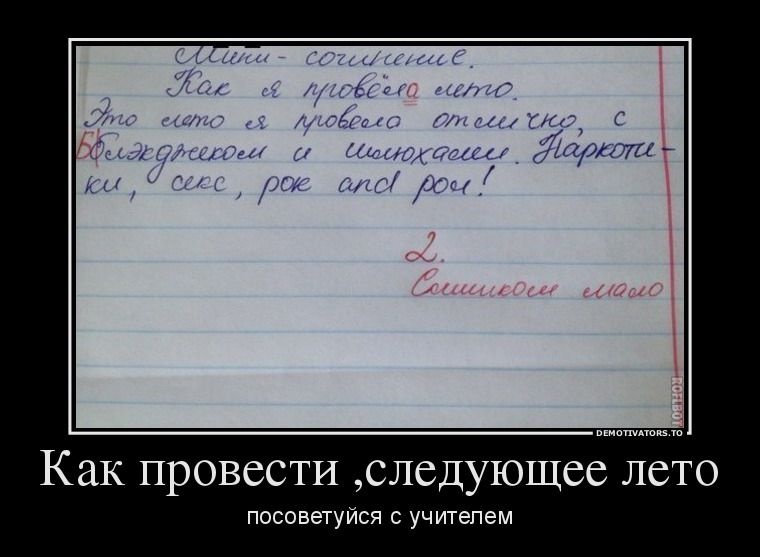 Мини - сочинение.
Как я провёла лето.
Это лето я провела отлично, с
Блэкджеком и шлюхами. Наркоти-
ки, секс, рок and рол!
2.
Слишком мало
ROFLBOT
DEMOTIVATORS.TO
Как провести ,следующее лето
посоветуйся с учителем